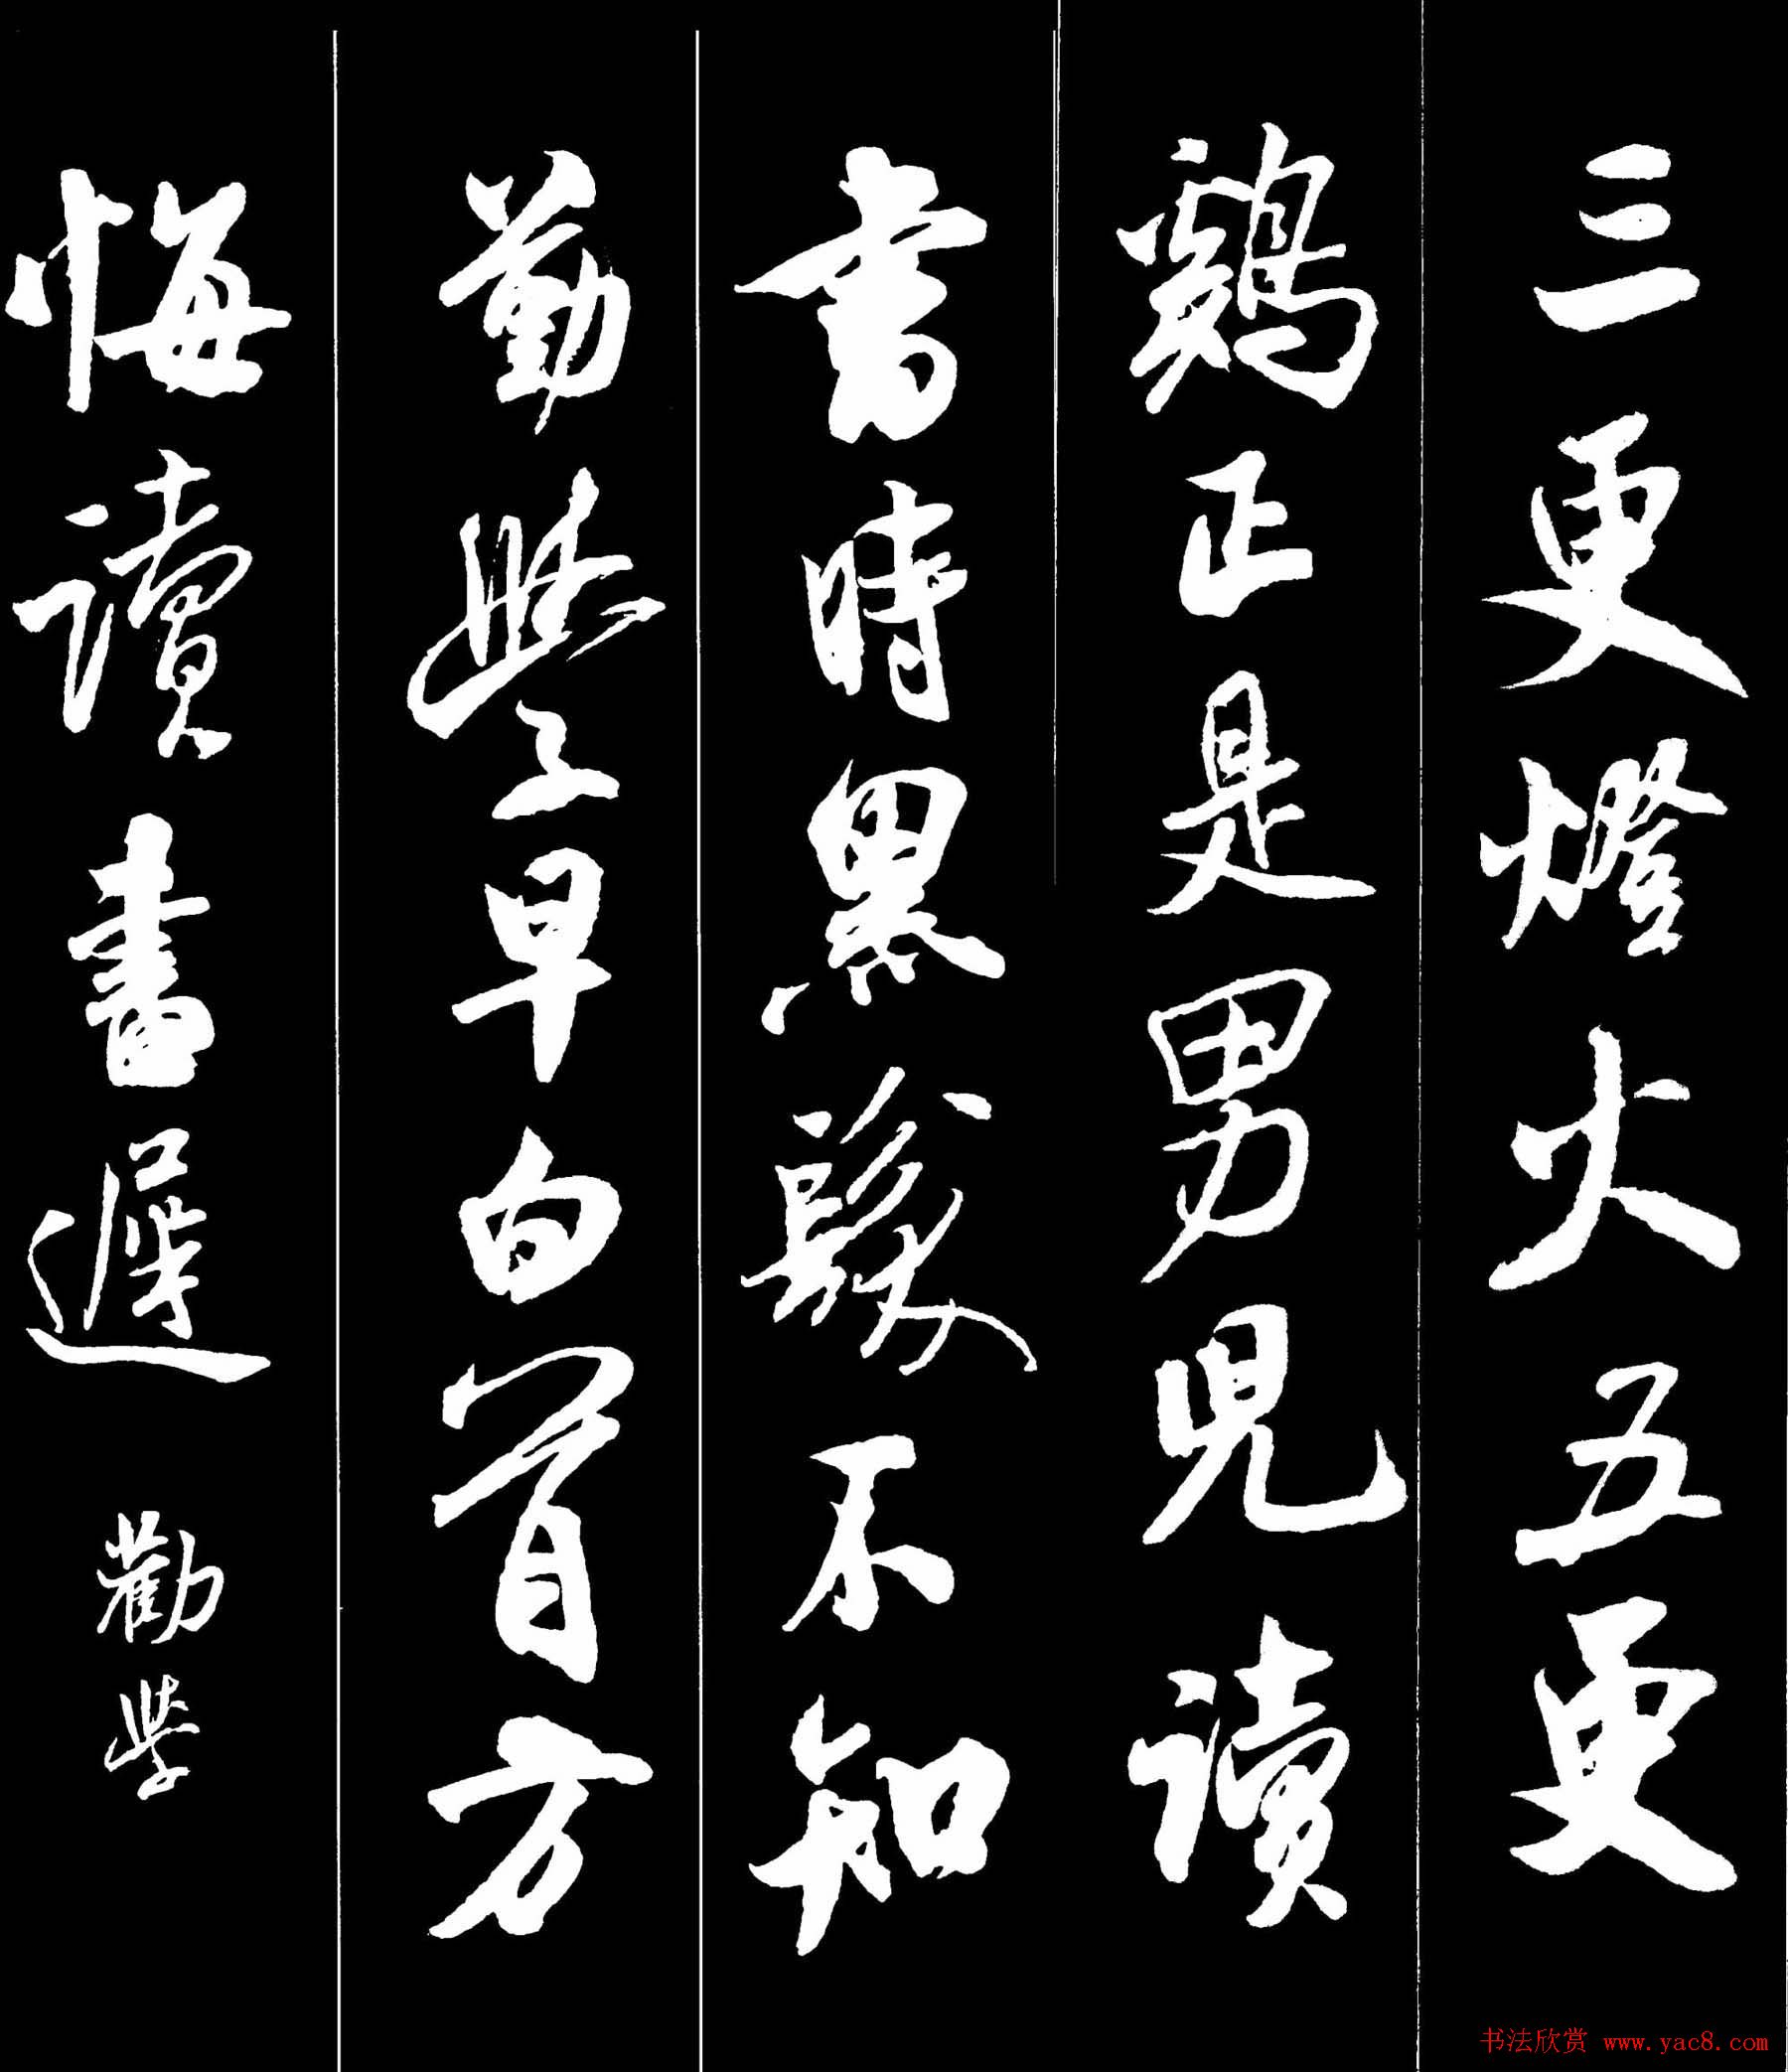 三更燈火五更
鷄正是男兒讀
書時黑髮不知
勤學早白首方
悔讀書遲 勸學
书法欣赏 www.yac8.com